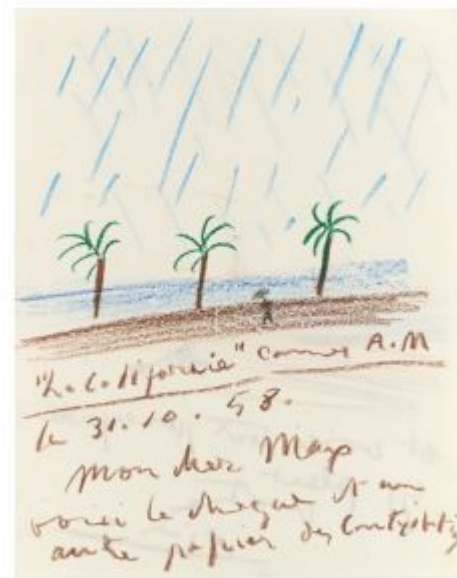 "La Californie" Cannes A.M
le 31.10.58.
Mon cher Max
voici le cheque et un
autre papier des Contributi